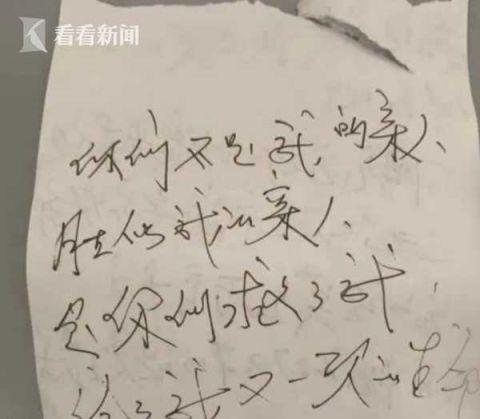 看看新闻
你们不是我的亲人、
胜似我的亲人、
是你们救了我、
给了我又一次的生命